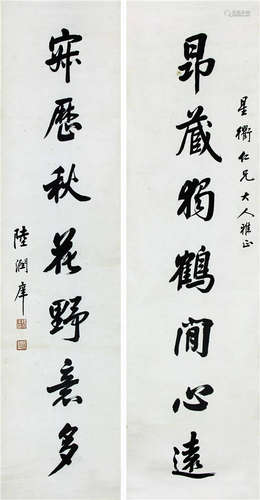 昂藏獨鶴閒心遠
星衢仁兄大人雅正
寂歷秋花野意多
陸潤庠